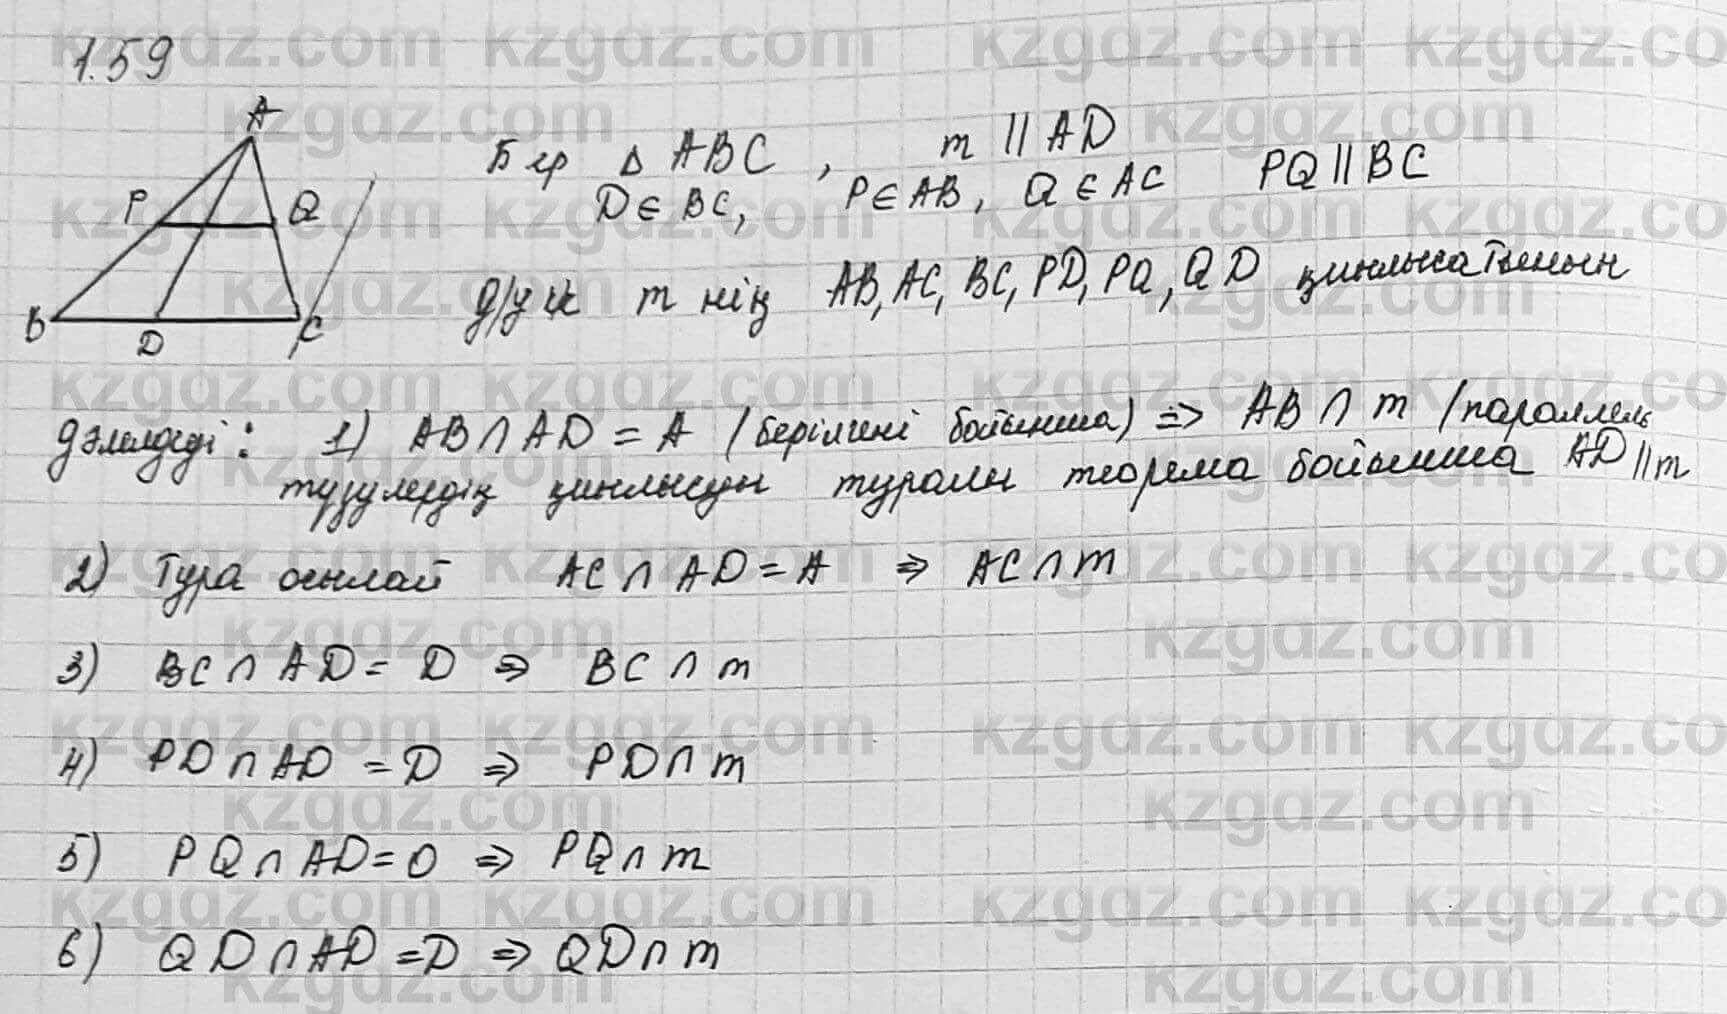 1.59
A
P Q
B D C
Бер Δ ABC, m || AD
D∈ BC, P∈AB, Q ∈ AC PQ || BC
Д/у к m нің AB, AC, BC, PD, PQ, QD қиылысатынын
Дәлелдеді: 1) AB ∩ AD = A (берілгені бойынша) => AB ∩ m (параллель
түзулердің қиылысуы туралы теорема бойынша AD || m
2) Тура осылай AC ∩ AD = A => AC ∩ m
3) BC ∩ AD = D => BC ∩ m
4) PD ∩ AD = D => PD ∩ m
5) PQ ∩ AD = O => PQ ∩ m
6) QD ∩ AD = D => QD ∩ m
kzgdz.com